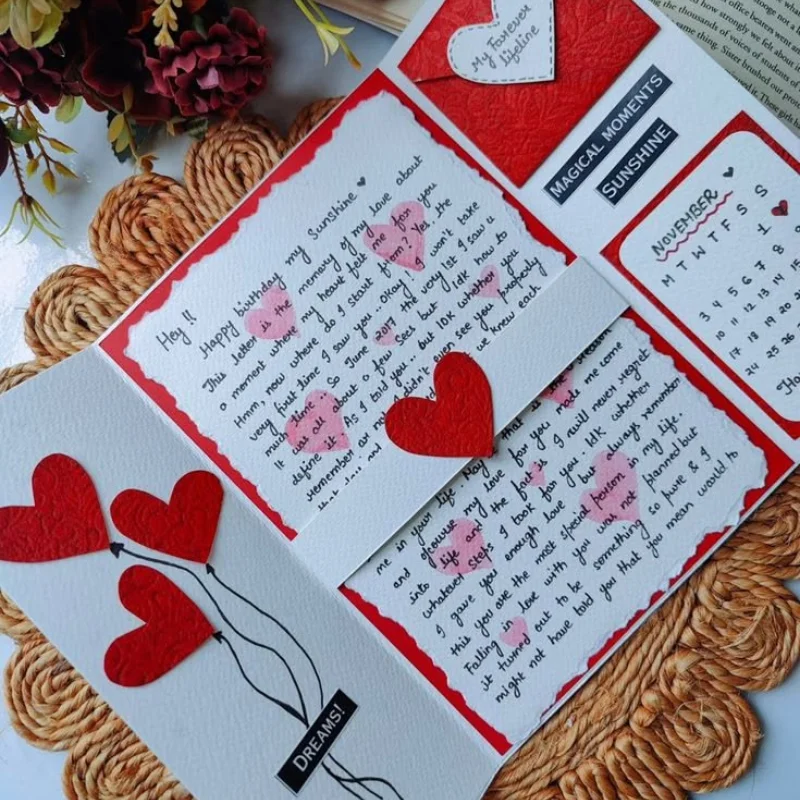 My Forever
lifeline
MAGICAL MOMENTS
SUNSHINE
Hey !!
Happy birthday my Sunshine
This letter is the memory of my love about
a moment where my heart felt me for you
Hmm, now where do I start from? Yes, the
very first time I saw you. Okay! I won't take
much time. So June 2017 the very 1st I saw u
It was all about a few Secs but Idk how to
define it. As I told you.. but IDK whether you
remember or didn't even see you properly
we knew each
me in your life. that is
and ofcourse my love for you made me come
into life and the fact is I will never regret
whatever steps I took for you. Idk whether
I gave you enough love but always remember
this you are the most special person in my life..
Falling in love with you was not planned but
it turned out to be something so pure & I
might not have told you that you mean would to
NOVEMBER
M T W T F S S
1
3 4 5 6 7 8
10 11 12 13 14 15
17 18 19 20
24 25 26
DREAMS!